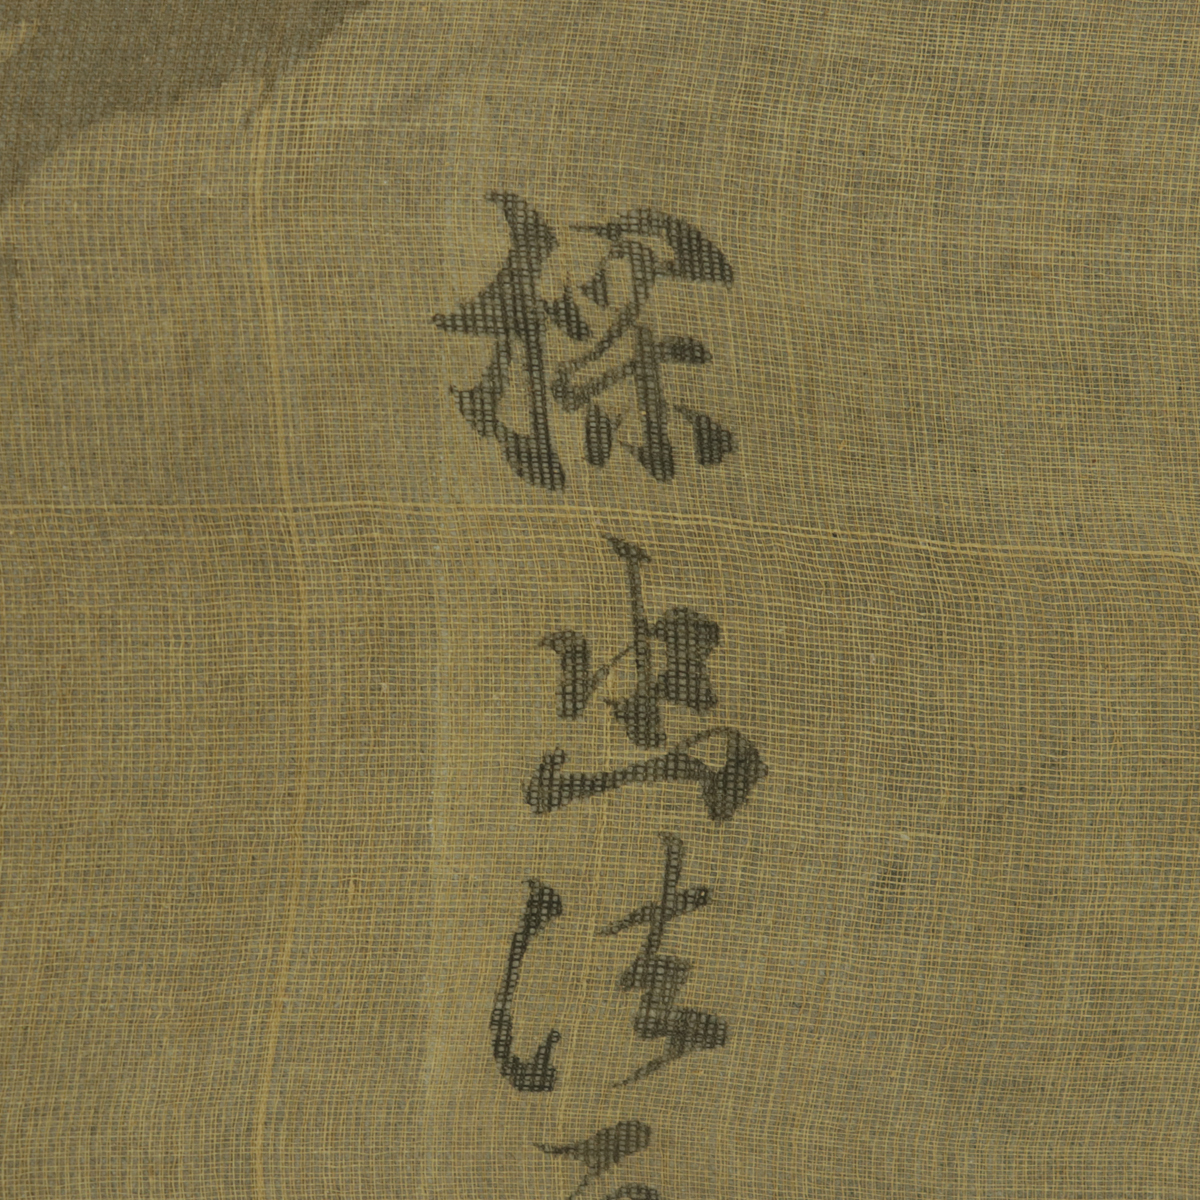 探幽法